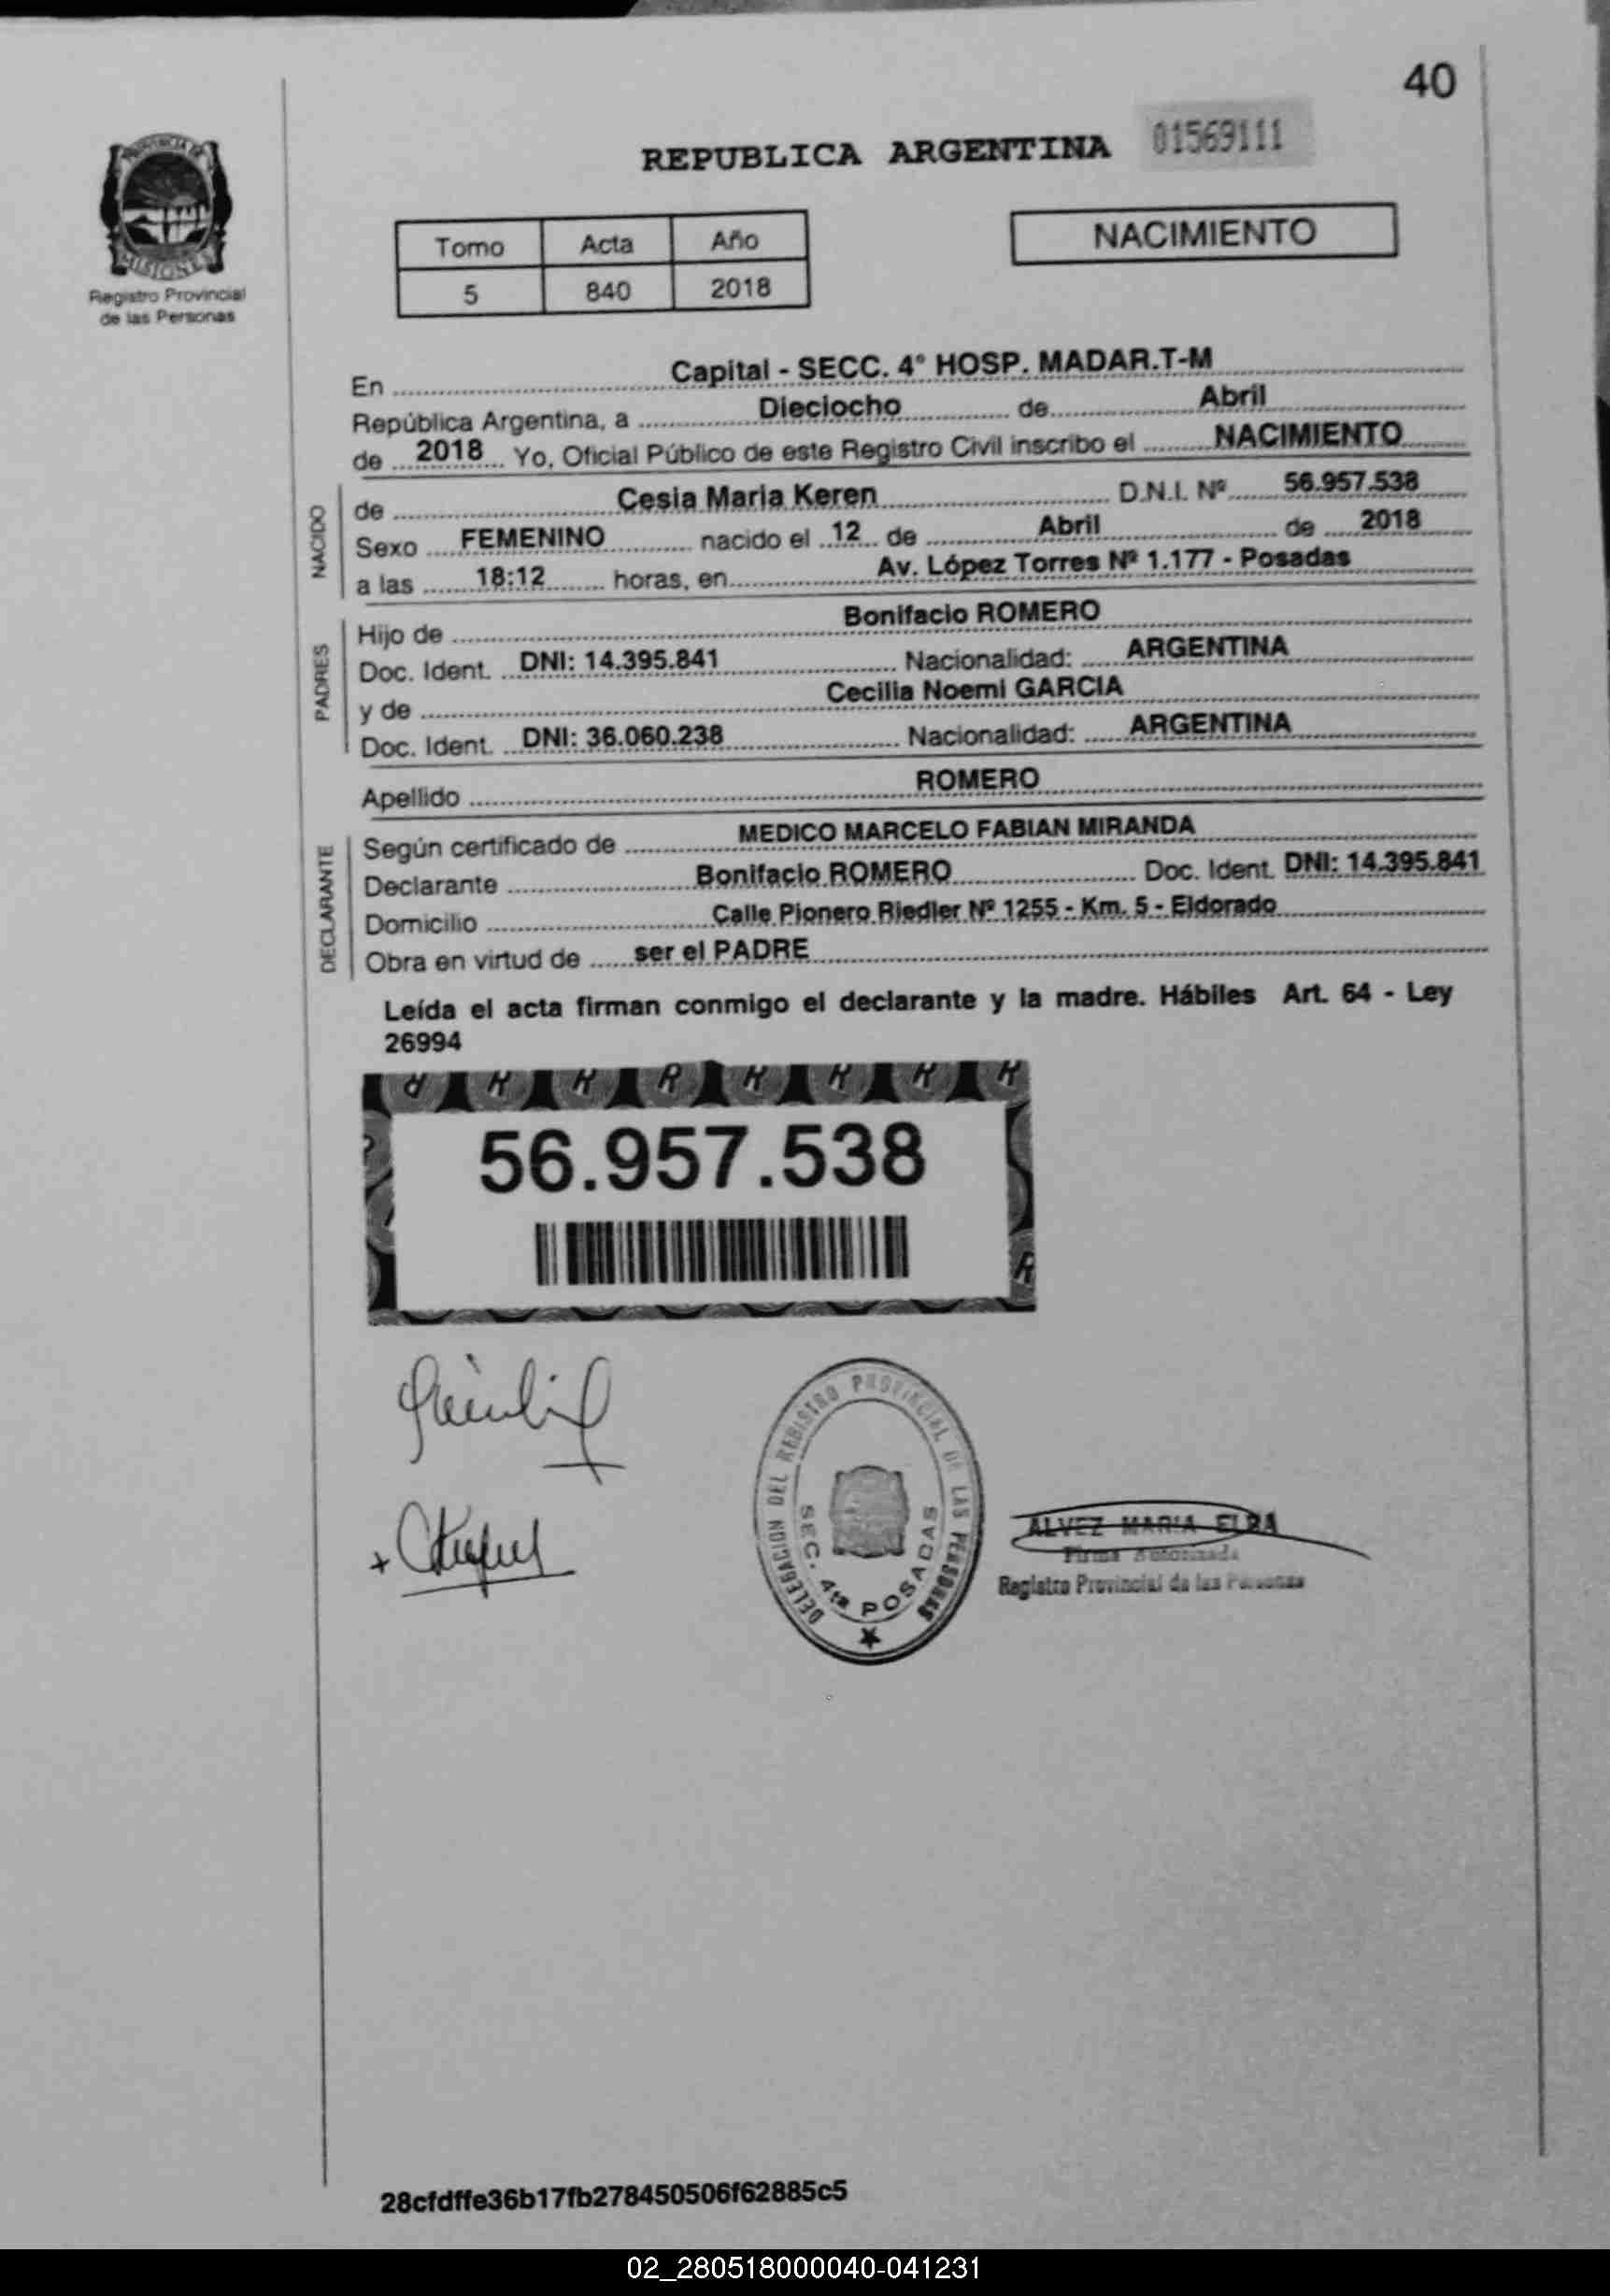 40
REPUBLICA ARGENTINA 01569111
PROVINCIA DE
MISIONES
Registro Provincial
de las Personas
Tomo Acta Año
5 840 2018
NACIMIENTO
En Capital - SECC. 4° HOSP. MADAR.T-M
República Argentina, a Dieciocho de Abril
de 2018 Yo, Oficial Público de este Registro Civil inscribo el NACIMIENTO
NACIDO
de Cesia Maria Keren D.N.I. Nº 56.957.538
Sexo FEMENINO nacido el 12 de Abril de 2018
a las 18:12 horas, en Av. López Torres Nº 1.177 - Posadas
PADRES
Hijo de Bonifacio ROMERO
Doc. Ident. DNI: 14.395.841 Nacionalidad: ARGENTINA
y de Cecilia Noemi GARCIA
Doc. Ident. DNI: 36.060.238 Nacionalidad: ARGENTINA
Apellido ROMERO
DECLARANTE
Según certificado de MEDICO MARCELO FABIAN MIRANDA
Declarante Bonifacio ROMERO Doc. Ident. DNI: 14.395.841
Domicilio Calle Pionero Riedler Nº 1255 - Km. 5 - Eldorado
Obra en virtud de ser el PADRE
Leída el acta firman conmigo el declarante y la madre. Hábiles Art. 64 - Ley
26994
56.957.538
DELEGACION DEL REGISTRO PROVINCIAL DE LAS PERSONAS
SEC. 4ta POSADAS
ALVEZ MARIA ELBA
Firma Autorizada
Registro Provincial de las Personas
28cfdffe36b17fb278450506f62885c5
02_280518000040-041231